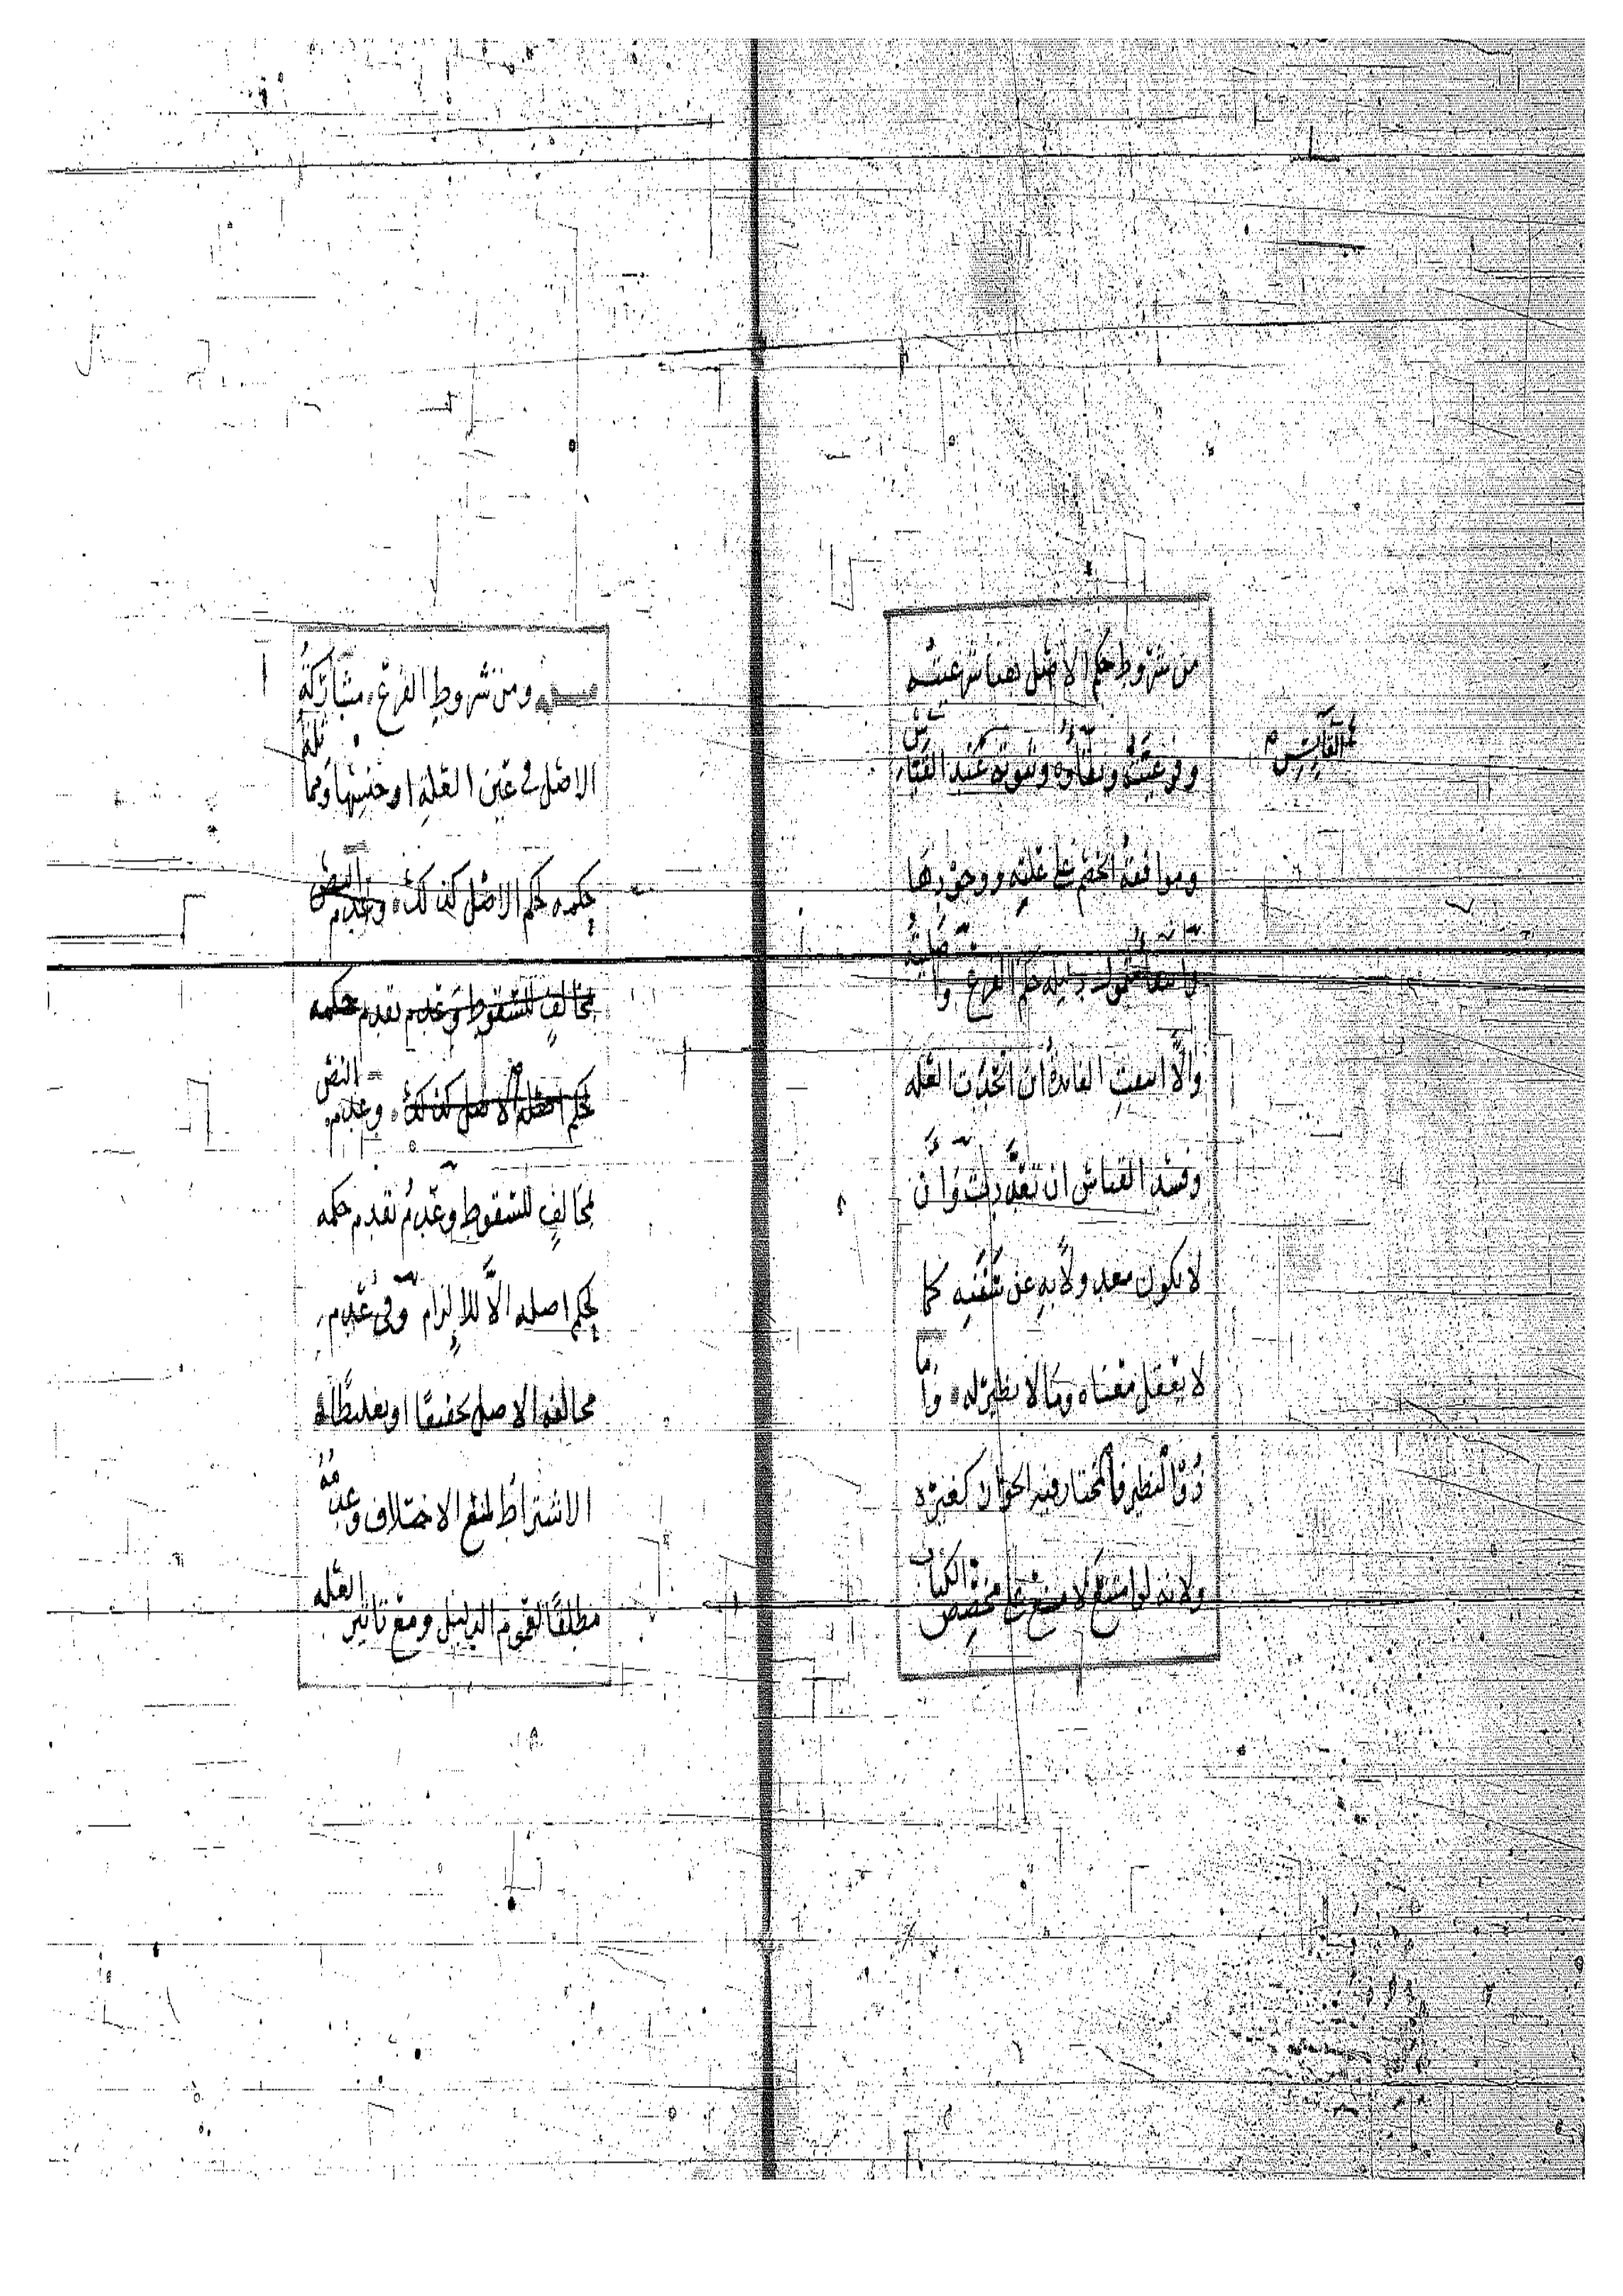 من شروط حكم الاصل هنا شرعيته
وفرعيته وبقاؤه وثبوته عند القياس
القايس
وموافقة الخصم على علته ووجودها
وانتفا شمول دليله حكم الفرع
والا انتفت الفائدة ان اتحدت العله
وفسد القياس ان تعددت وان
لا يكون معدولا به عن سننه كما
لا يعقل معناه وما لا نظير له وأما
ذو النظير فالمختار فيه الجواز كغيره
ولانه لو امتنع لامتنع على مخصص الكتاب
ومن شروط الفرع مشاركته
الاصل في عين العله او جنسها ومماثلة
حكمه لحكم الاصل كذلك وعدم النص
مخالف للسقوط وعدم تقدم حكمه
لحكم الاصل كذلك وعدم النص
مخالف للسقوط وعدم تقدم حكمه
لحكم اصله الا للالزام وفي عدم
مخالفه الاصل تخفيفا او تغليظا
الاشتراط لمنع الاختلاف وعدمه
مطلقا لعموم الدليل ومع تاثير العله